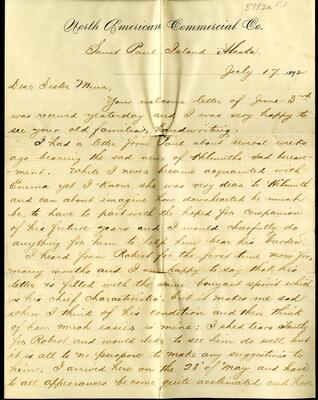 North American Commercial Co.
Saint Paul Island Alaska.
July 17, 1892
Dear Sister Mina,
Your welcome letter of June 3rd
was received yesterday and I was very happy to
see your old familiar handwriting.
I had a letter from Paul about several weeks
ago bearing the sad news of Helmuths sad bereave-
ment. While I never became acquainted with
Emma yet I know she was very dear to Helmuth
and can about imagine how downhearted he must
be, to have to part with the hoped for companion
of his future years and I would cheerfully do
anything for him to help him bear his burden.
I heard from Robert for the first time now for
many months and I am happy to say that his
letter is filled with the same bouyant spirit which
is his chief characteristic, but it makes me sad
when I think of his condition and then think
of how much easier is mine; I shed tears
for Robert and would like to see him do well but
it is all to no purpose to make any suggestions to
him. I arrived here on the 28 of May and have
to all appearances become quite acclimated and have